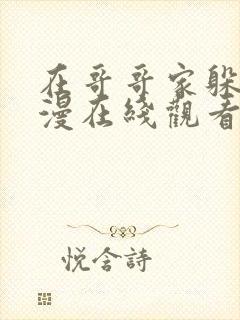 在哥哥家躲
漫在綫觀看
悦含詩